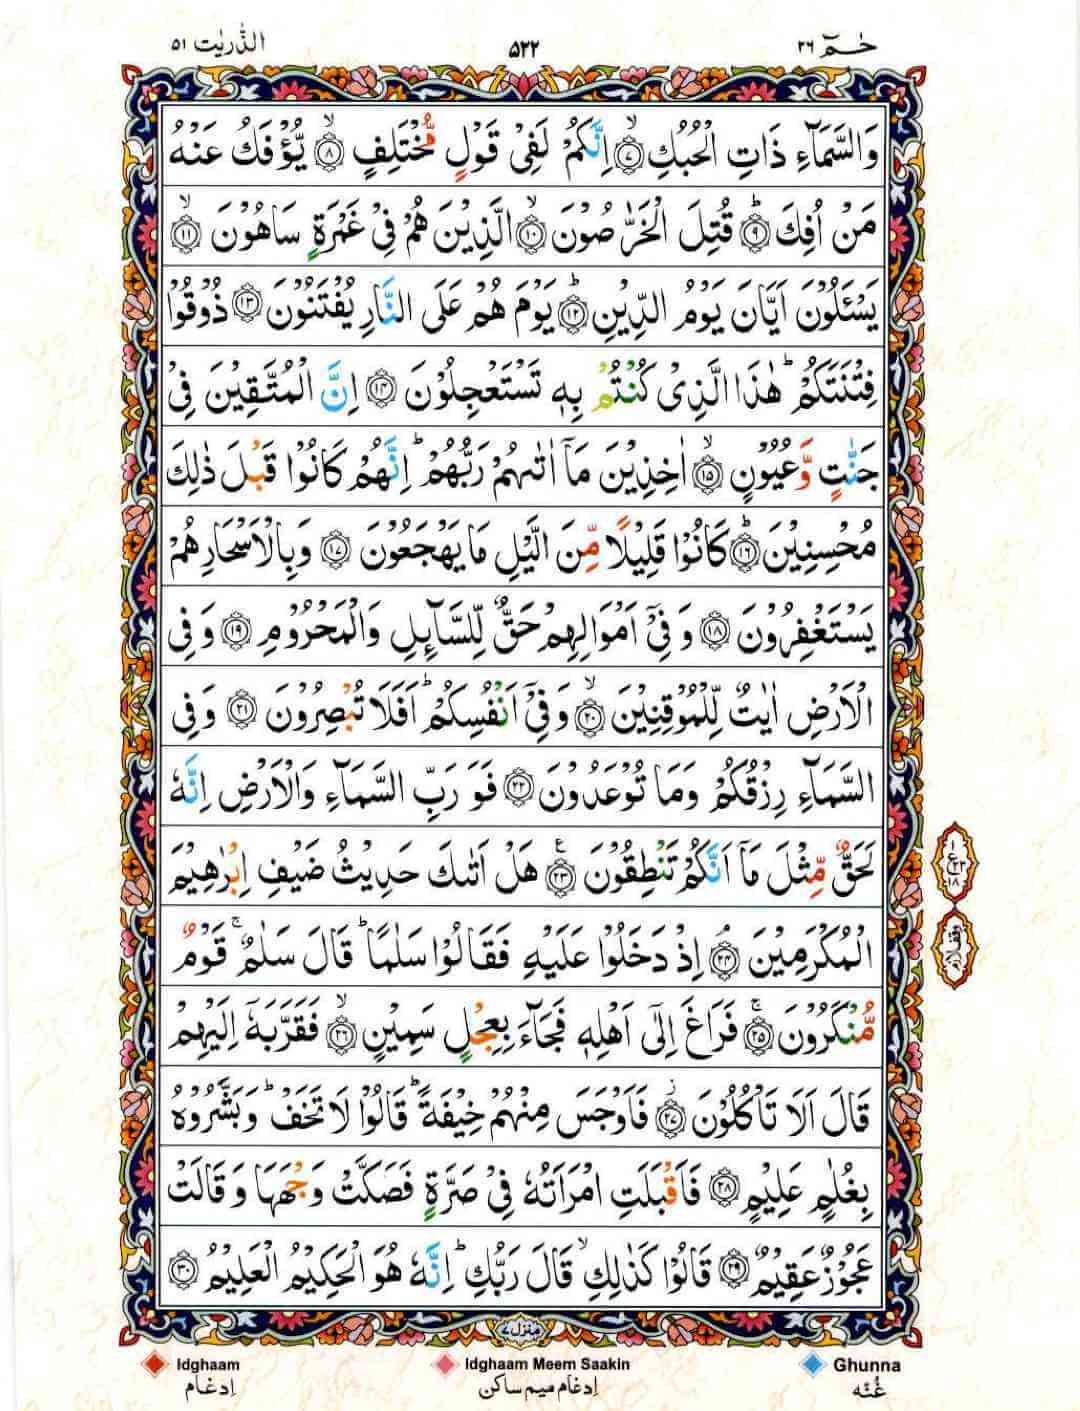 حٰمٓ ٢٦ ٥٢٢ الذّٰریٰت ٥١
وَالسَّمَآءِ ذَاتِ الْحُبُكِ ۙ﴿٧﴾ اِنَّكُمْ لَفِیْ قَوْلٍ مُّخْتَلِفٍ ۙ﴿٨﴾ یُّؤْفَكُ عَنْهُ
مَنْ اُفِكَ ؕ﴿٩﴾ قُتِلَ الْخَرّٰصُوْنَ ۙ﴿١٠﴾ الَّذِیْنَ هُمْ فِیْ غَمْرَةٍ سَاهُوْنَ ۙ﴿١١﴾
یَسْـَٔلُوْنَ اَیَّانَ یَوْمُ الدِّیْنِ ؕ﴿١٢﴾ یَوْمَ هُمْ عَلَی النَّارِ یُفْتَنُوْنَ ﴿١٣﴾ ذُوْقُوْا
فِتْنَتَكُمْ ؕ هٰذَا الَّذِیْ كُنْتُمْ بِهٖ تَسْتَعْجِلُوْنَ ﴿١٤﴾ اِنَّ الْمُتَّقِیْنَ فِیْ
جَنّٰتٍ وَّعُیُوْنٍ ۙ﴿١٥﴾ اٰخِذِیْنَ مَاۤ اٰتٰىهُمْ رَبُّهُمْ ؕ اِنَّهُمْ كَانُوْا قَبْلَ ذٰلِكَ
مُحْسِنِیْنَ ؕ﴿١٦﴾ كَانُوْا قَلِیْلًا مِّنَ الَّیْلِ مَا یَهْجَعُوْنَ ﴿١٧﴾ وَبِالْاَسْحَارِ هُمْ
یَسْتَغْفِرُوْنَ ﴿١٨﴾ وَفِیْۤ اَمْوَالِهِمْ حَقٌّ لِّلسَّآىِٕلِ وَالْمَحْرُوْمِ ﴿١٩﴾ وَفِی
الْاَرْضِ اٰیٰتٌ لِّلْمُوْقِنِیْنَ ۙ﴿٢٠﴾ وَفِیْۤ اَنْفُسِكُمْ ؕ اَفَلَا تُبْصِرُوْنَ ﴿٢١﴾ وَفِی
السَّمَآءِ رِزْقُكُمْ وَمَا تُوْعَدُوْنَ ﴿٢٢﴾ فَوَرَبِّ السَّمَآءِ وَالْاَرْضِ اِنَّهٗ
لَحَقٌّ مِّثْلَ مَاۤ اَنَّكُمْ تَنْطِقُوْنَ ﴿٢٣﴾ هَلْ اَتٰىكَ حَدِیْثُ ضَیْفِ اِبْرٰهِیْمَ
الْمُكْرَمِیْنَ ۘ﴿٢٤﴾ اِذْ دَخَلُوْا عَلَیْهِ فَقَالُوْا سَلٰمًا ؕ قَالَ سَلٰمٌ ۚ قَوْمٌ
مُّنْكَرُوْنَ ۚ﴿٢٥﴾ فَرَاغَ اِلٰۤی اَهْلِهٖ فَجَآءَ بِعِجْلٍ سَمِیْنٍ ۙ﴿٢٦﴾ فَقَرَّبَهٗۤ اِلَیْهِمْ
قَالَ اَلَا تَاْكُلُوْنَ ؗ﴿٢٧﴾ فَاَوْجَسَ مِنْهُمْ خِیْفَةً ؕ قَالُوْا لَا تَخَفْ ؕ وَبَشَّرُوْهُ
بِغُلٰمٍ عَلِیْمٍ ﴿٢٨﴾ فَاَقْبَلَتِ امْرَاَتُهٗ فِیْ صَرَّةٍ فَصَكَّتْ وَجْهَهَا وَقَالَتْ
عَجُوْزٌ عَقِیْمٌ ﴿٢٩﴾ قَالُوْا كَذٰلِكِ ۙ قَالَ رَبُّكِ ؕ اِنَّهٗ هُوَ الْحَكِیْمُ الْعَلِیْمُ ﴿٣٠﴾
١ ع ٢٣ ١٨
وقف لازم
منزل ٧
Idghaam Idghaam Meem Saakin Ghunna
اِدغام اِدغام میم ساکن غُنّه